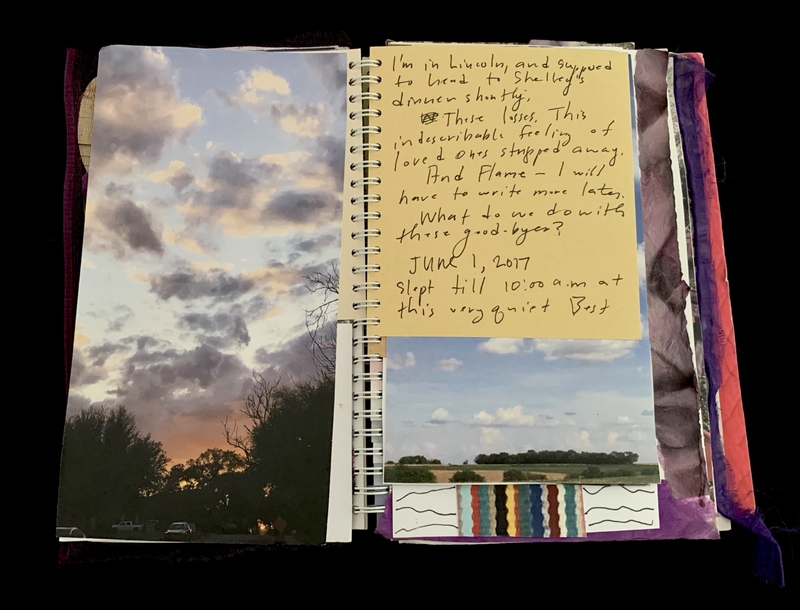 I'm in Lincoln, and supposed
to head to Shelley's
dinner shortly.
These losses. This
indescribable feeling of
loved ones stripped away.
And Flame – I will
have to write more later.
What do we do with
these good-byes?
JUNE 1, 2017
Slept till 10:00 a.m at
this very quiet Best